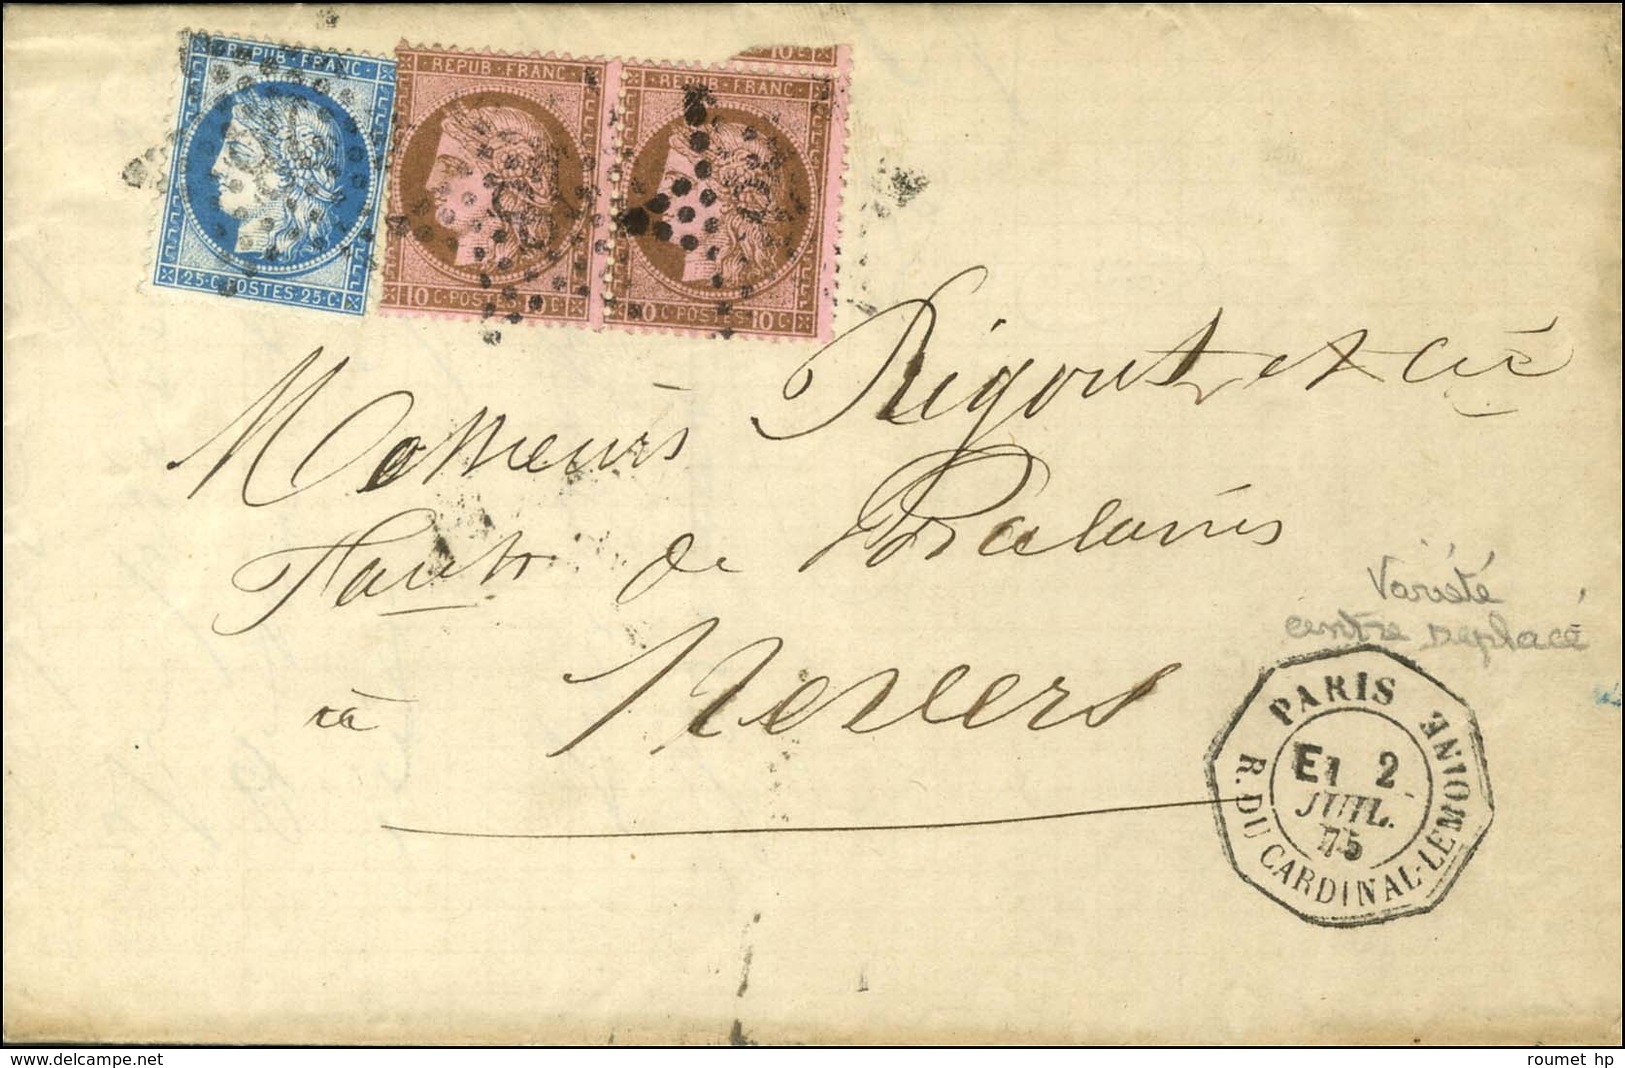 REPUB · FRANC
25 · C · POSTES · 25 · C
REPUB · FRANC
10 C · POSTES · 10 C
10 · C
REPUB · FRANC
10 C · POSTES · 10 C
Messieurs Rigout et Cie
de
à Nevers
Variété
centre déplacé
PARIS
E1 2
JUIL.
75
R. DU CARDINAL-LEMOINE
www.delcampe.net
roumet hp